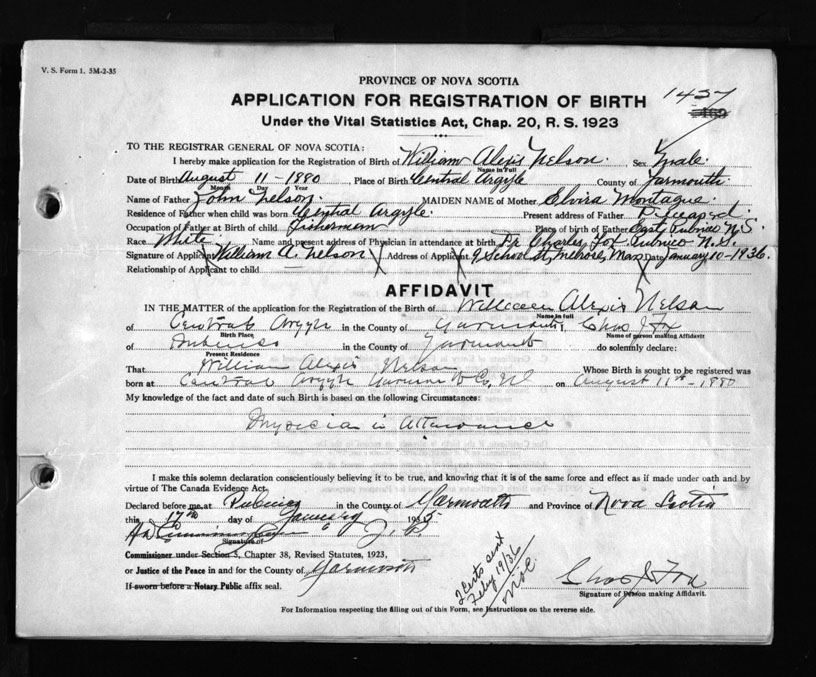 V. S. Form 1. 3M-2-35
PROVINCE OF NOVA SCOTIA
1457
APPLICATION FOR REGISTRATION OF BIRTH
Under the Vital Statistics Act, Chap. 20, R. S. 1923
TO THE REGISTRAR GENERAL OF NOVA SCOTIA:
I hereby make application for the Registration of Birth of William Alexis Nelson. Sex Male.
Name in Full
Date of Birth August 11-1880 Place of Birth Central Argyle County of Yarmouth
Month Day Year
Name of Father John Nelson. MAIDEN NAME of Mother Elvira Montague
Residence of Father when child was born Central Argyle. Present address of Father Deceased.
Occupation of Father at Birth of Child Fisherman Place of birth of Father East Pubnico N.S.
Race White Name and present address of Physician in attendance at birth Dr Charles Fox Pubnico N.S.
Signature of Applicant William A. Nelson Address of Applicant 9 School St, Melrose, Mass Date January 10-1936.
Relationship of Applicant to child —
AFFIDAVIT
IN THE MATTER of the application for the Registration of the Birth of William Alexis Nelson
Name in full
of Central Argyle in the County of Yarmouth, Chas J Fox
Birth Place Name of person making Affidavit
of Pubnico in the County of Yarmouth do solemnly declare:
Present Residence
That William Alexis Nelson Whose Birth is sought to be registered was
born at Central Argyle Yarmouth Co, NS on August 11th-1880
My knowledge of the fact and date of such Birth is based on the following Circumstances:
Physician in Attendance
I make this solemn declaration conscientiously believing it to be true, and knowing that it is of the same force and effect as if made under oath and by
virtue of The Canada Evidence Act.
Declared before me, at Pubnico in the County of Yarmouth and Province of Nova Scotia
this 17th day of January 193
J. P.
Signature of
Commissioner under Section 3, Chapter 38, Revised Statutes, 1923,
or Justice of the Peace in and for the County of Yarmouth
If sworn before a Notary Public affix seal.
2 Certs sent
Feby 19/36
Chas J Fox
Signature of Person making Affidavit.
For Information respecting the filling out of this Form, see Instructions on the reverse side.